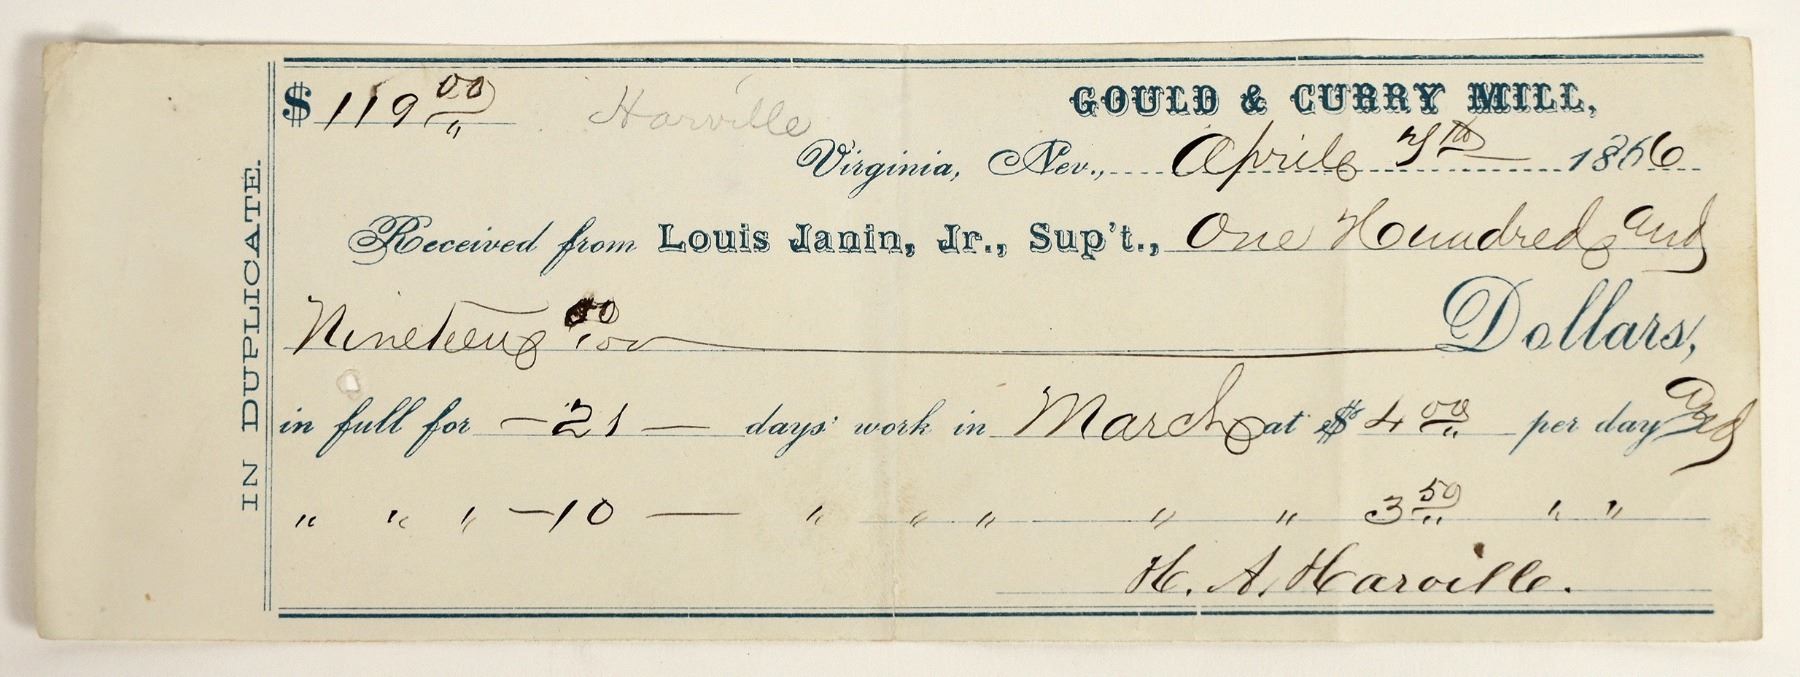 $ 119 00/"
Harville
GOULD & CURRY MILL,
Virginia, Nev., April 7th 1866
Received from Louis Janin, Jr., Sup't., One Hundred and
Nineteen 00/100 Dollars,
in full for — 21 — days' work in March at $ 4 00/" per day and
" " " — 10 — " " " " " 3 50/" " "
H. A. Harville.
IN DUPLICATE.